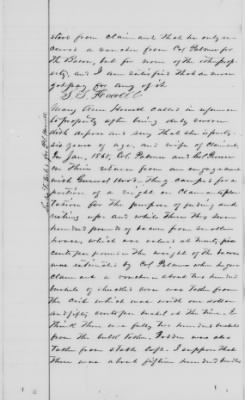 store from claim and that he only re-
ceived a voucher from Col Palmer for
the Bacon, but for none of the other prop-
erty, and I am satisfied that he never
got pay for any of it
S. S. Howell
Mary Ann Howell called in reference
to property after being duly sworn
doth depose and say that she is forty-
six years of age, and wife of claimant
In Jan. 1865, Col. Palmer and Col.
on their return from an engagement
with General Hood. They camped for a
portion of a night on Claimants plan-
tation for the purpose of feeding and
resting up and while there this seven
hundred pounds of bacon from smoke
house, which was valued at twenty five
cents per pound. The weight of the bacon
was estimated by Col Palmer who gave
claimant a voucher about two hundred
bushels of shucked corn was taken from
the crib which was worth one dollar
and fifty cents per bushel at the time. I
think there was fully two hundred bushels
from the bulk taken. Fodder was also
taken from stable loft. I suppose that
there was about fifteen hundred bundles